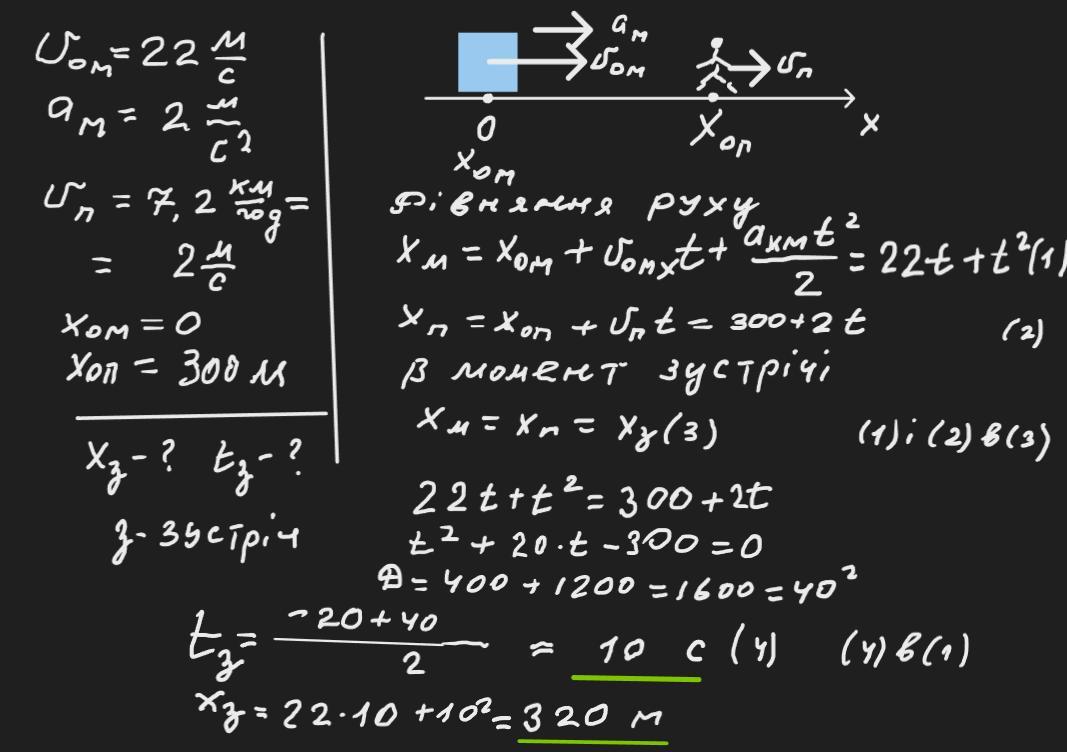 υ₀ₘ = 22 м/с
aₘ = 2 м/с²
υₙ = 7,2 км/год =
= 2 м/с
x₀ₘ = 0
x₀ₙ = 300 м
x_з - ? t_з - ?
з - зустріч
aₘ
υ₀ₘ
υₙ
0
x₀ₘ
x₀ₙ
x
Рівняння руху
x_м = x_ом + υ_омх t + a_хм t²/2 = 22t + t² (1)
x_п = x_оп + υ_п t = 300 + 2t (2)
В момент зустрічі
x_м = x_п = x_з (3) (1) і (2) в (3)
22t + t² = 300 + 2t
t² + 20·t - 300 = 0
D = 400 + 1200 = 1600 = 40²
t_з = (-20 + 40)/2 = 10 с (4) (4) в (1)
x_з = 22·10 + 10² = 320 м